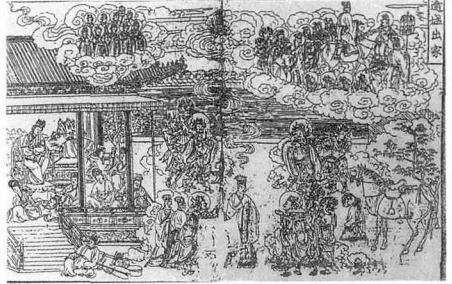 逾城出家